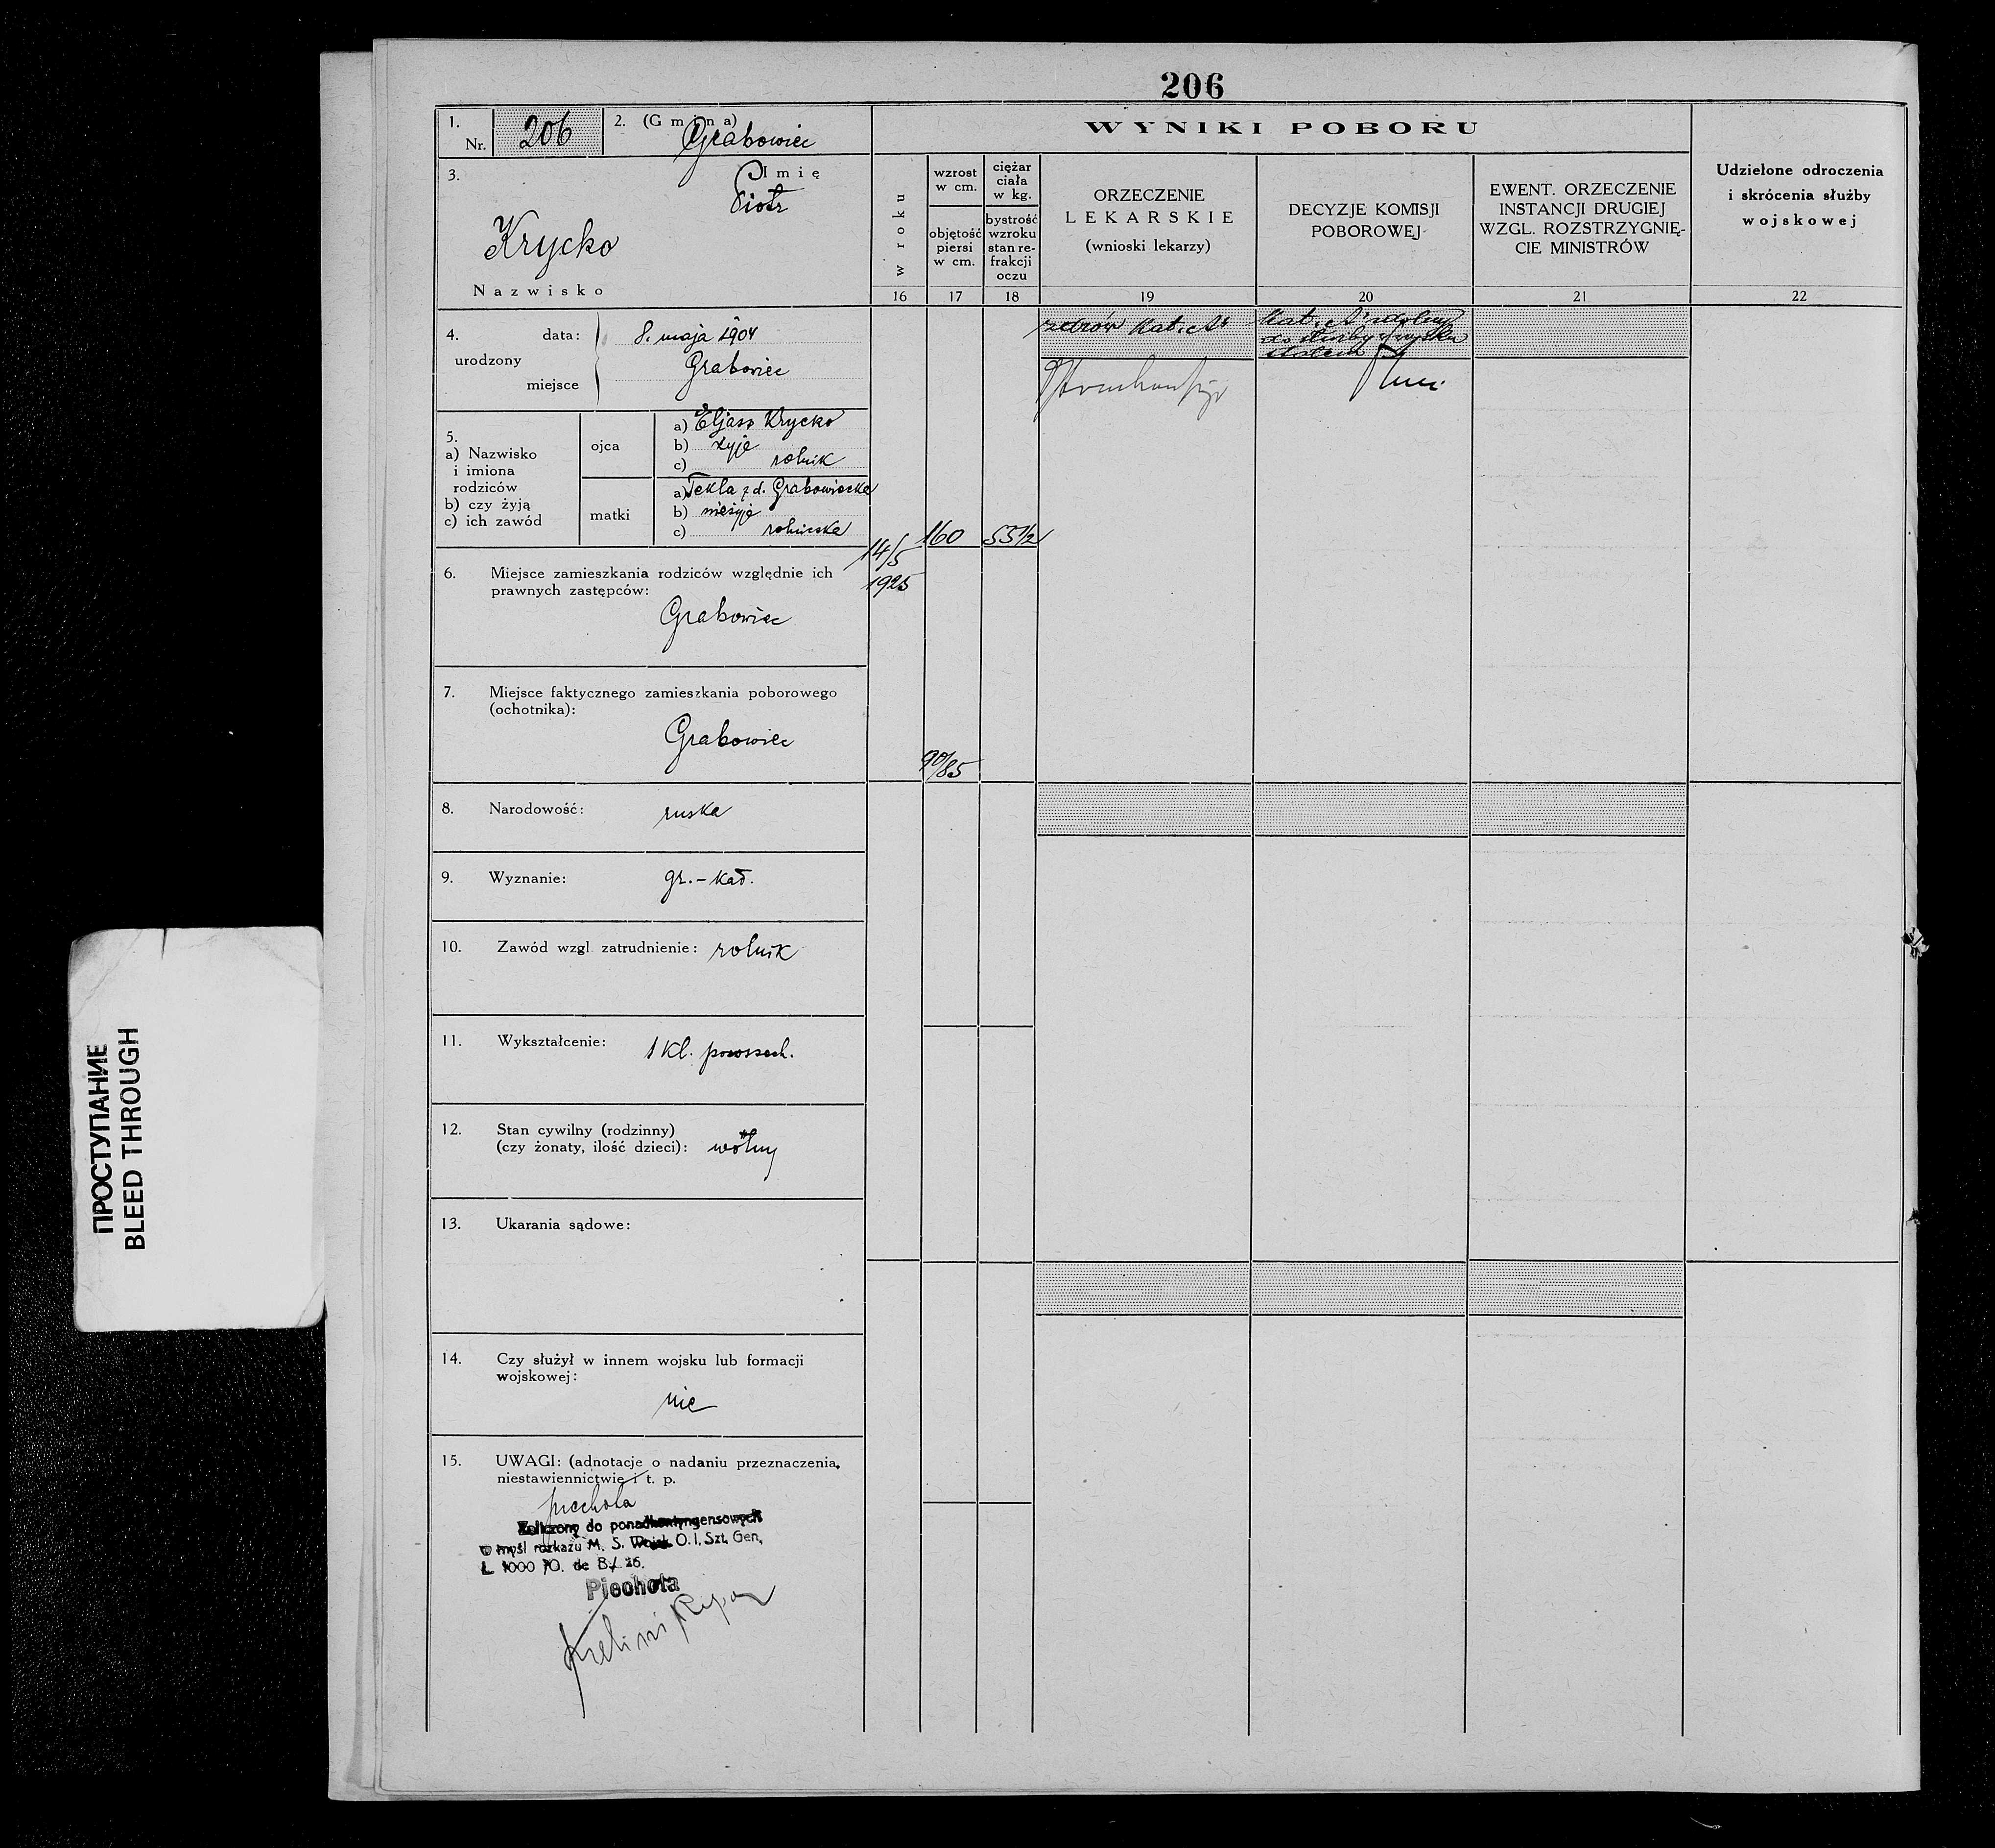 206
1.
Nr. 206
2. (Gmina)
Grabowiec
3. Imię
Piotr
Krycko
Nazwisko
4. data: 8. maja 1904
urodzony
Grabowiec
miejsce
5.
a) Nazwisko
i imiona
rodziców
b) czy żyją
c) ich zawód
ojca
a) Eljasz Krycko
b) żyje
c) rolnik
matki
a) Tekla z d. Grabowiecka
b) nieżyje
c) rolniczka
6. Miejsce zamieszkania rodziców względnie ich
prawnych zastępców:
Grabowiec
7. Miejsce faktycznego zamieszkania poborowego
(ochotnika):
Grabowiec
8. Narodowość: ruska
9. Wyznanie: gr.-kat.
10. Zawód wzgl. zatrudnienie: rolnik
11. Wykształcenie: 1 kl. powszech.
12. Stan cywilny (rodzinny)
(czy żonaty, ilość dzieci): wolny
13. Ukarania sądowe:
14. Czy służył w innem wojsku lub formacji
wojskowej:
nie
15. UWAGI: (adnotacje o nadaniu przeznaczenia,
niestawiennictwie i t. p.
piechota
Zaliczony do ponadkontyngensowych
w myśl rozkazu M. S. Wojsk. O. I. Szt. Gen,
L. 1000 /O. de B/ 26.
Piechota
WYNIKI POBORU
w roku
wzrost
w cm.
objętość
piersi
w cm.
ciężar
ciała
w kg.
bystrość
wzroku
stan re-
frakcji
oczu
ORZECZENIE
LEKARSKIE
(wnioski lekarzy)
DECYZJE KOMISJI
POBOROWEJ
EWENT. ORZECZENIE
INSTANCJI DRUGIEJ
WZGL. ROZSTRZYGNIĘ-
CIE MINISTRÓW
Udzielone odroczenia
i skrócenia służby
wojskowej
16 17 18 19 20 21 22
zdrów Kat. A
Kat. A zdolny
do służby wojska
14/5
1925
160
55 1/2
90/85
ПРОСТУПАНИЕ
BLEED THROUGH